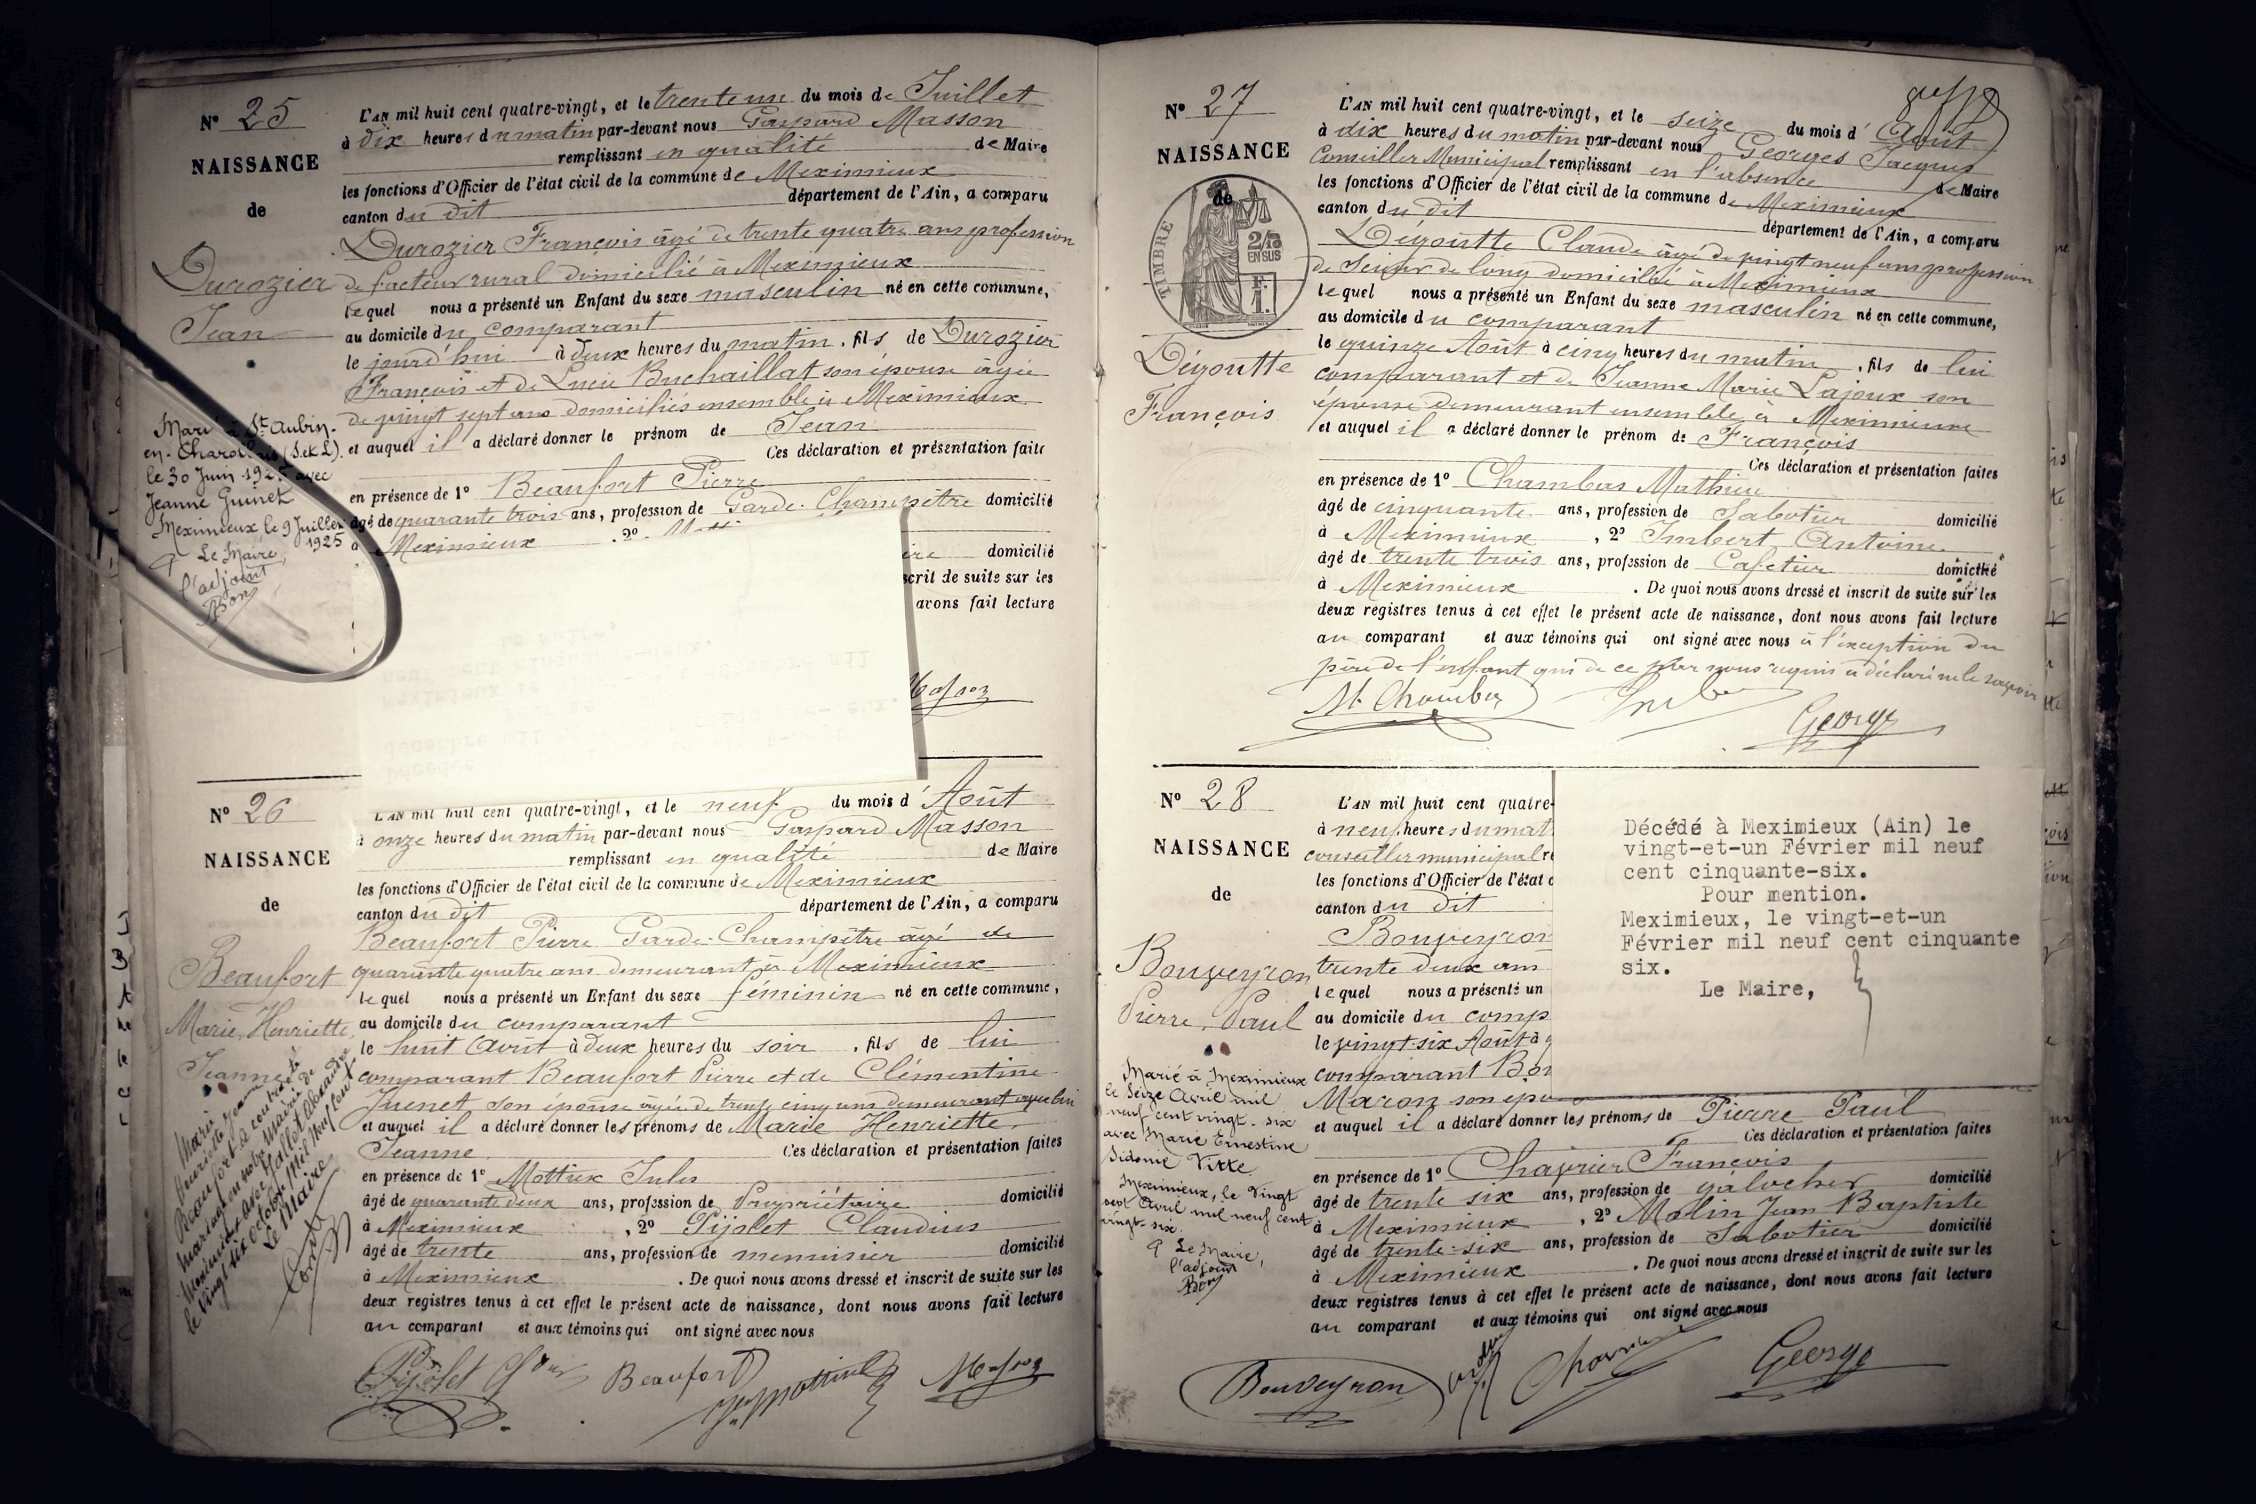 N° 25
NAISSANCE
de
Durozier
Jean
L'AN mil huit cent quatre-vingt, et le trente un du mois de Juillet
à dix heures du matin par-devant nous Gaspard Masson
remplissant en qualité de Maire
les fonctions d'Officier de l'état civil de la commune de Meximieux
canton du dit département de l'Ain, a comparu
Durozier François âgé de trente quatre ans profession
de facteur rural domicilié à Meximieux
lequel nous a présenté un Enfant du sexe masculin né en cette commune,
au domicile du comparant
le jourd'hui à deux heures du matin, fils de Durozier
François et de Lucie Buchaillat son épouse âgée
de vingt sept ans domiciliés ensemble à Meximieux
et auquel il a déclaré donner le prénom de Jean
Ces déclaration et présentation faite
en présence de 1° Beaufort Pierre
âgé de quarante trois ans, profession de Garde-Champêtre domicilié
à Meximieux, 2°
domicilié
scrit de suite sur les
avons fait lecture
Masson
Marié à St Aubin-
en-Charollais (S.et L)
le 30 Juin 1925 avec
Jeanne Guinet
Meximieux le 9 Juillet
1925
Le Maire,
l'adjoint
N° 26
NAISSANCE
de
Beaufort
Marie, Henriette
Jeanne
L'AN mil huit cent quatre-vingt, et le neuf du mois d'Août
à onze heures du matin par-devant nous Gaspard Masson
remplissant en qualité de Maire
les fonctions d'Officier de l'état civil de la commune de Meximieux
canton du dit département de l'Ain, a comparu
Beaufort Pierre Garde-Champêtre âgé de
quarante quatre ans demeurant à Meximieux
lequel nous a présenté un Enfant du sexe féminin né en cette commune,
au domicile du comparant
le huit Août à deux heures du soir, fils de lui
comparant Beaufort Pierre et de Clémentine
Juenet son épouse âgée de trente cinq ans demeurant avec lui
et auquel il a déclaré donner les prénoms de Marie Henriette
Jeanne Ces déclaration et présentation faites
en présence de 1° Mottux Jules
âgé de quarante deux ans, profession de Propriétaire domicilié
à Meximieux, 2° Pijolet Claudius
âgé de trente ans, profession de menuisier domicilié
à Meximieux. De quoi nous avons dressé et inscrit de suite sur les
deux registres tenus à cet effet le présent acte de naissance, dont nous avons fait lecture
au comparant et aux témoins qui ont signé avec nous
Pijolet Beaufort Masson
Marie
Henriette Jeanne
Beaufort a contracté
mariage en notre mairie de
Meximieux avec Mallet Alexandre
le vingt six octobre mil neuf cent
Le Maire
N° 27
NAISSANCE
de
TIMBRE
2/10 EN SUS
F. 1.
Dégoutte
François
L'AN mil huit cent quatre-vingt, et le seize du mois d'Août
à dix heures du matin par-devant nous Georges Jacques
Conseiller Municipal remplissant en l'absence de Maire
les fonctions d'Officier de l'état civil de la commune de Meximieux
canton du dit département de l'Ain, a comparu
Dégoutte Claude âgé de vingt neuf ans profession
de Scieur de long domicilié à Meximieux
lequel nous a présenté un Enfant du sexe masculin né en cette commune,
au domicile du comparant
le quinze Août à cinq heures du matin, fils de lui
comparant et de Jeanne Marie Lajoux son
épouse demeurant ensemble à Meximieux
et auquel il a déclaré donner le prénom de François
Ces déclaration et présentation faites
en présence de 1° Chambas Mathieu
âgé de cinquante ans, profession de Sabotier domicilié
à Meximieux, 2° Imbert Antoine
âgé de trente trois ans, profession de Cafetier domicilié
à Meximieux. De quoi nous avons dressé et inscrit de suite sur les
deux registres tenus à cet effet le présent acte de naissance, dont nous avons fait lecture
au comparant et aux témoins qui ont signé avec nous à l'exception du
père de l'enfant qui de ce par nous requis a déclaré ne le savoir
George
N° 28
NAISSANCE
de
Bouveyron
Pierre, Paul
L'AN mil huit cent quatre-
à neuf heures du mat
conseiller municipal re
les fonctions d'Officier de l'état c
canton du dit
Bouveyron
trente deux ans
lequel nous a présenté un
au domicile du comp
le vingt-six Août à
comparant Bou
Maron son épou
et auquel il a déclaré donner les prénoms de Pierre Paul
Ces déclaration et présentation faites
en présence de 1° Chavrier François
âgé de trente six ans, profession de galocher domicilié
à Meximieux, 2° Molin Jean Baptiste
âgé de trente-six ans, profession de Sabotier domicilié
à Meximieux. De quoi nous avons dressé et inscrit de suite sur les
deux registres tenus à cet effet le présent acte de naissance, dont nous avons fait lecture
au comparant et aux témoins qui ont signé avec nous
Bouveyron George
Décédé à Meximieux (Ain) le
vingt-et-un Février mil neuf
cent cinquante-six.
Pour mention.
Meximieux, le vingt-et-un
Février mil neuf cent cinquante
six.
Le Maire,
Marié à Meximieux
le Seize Avril mil
neuf cent vingt-six
avec Marie Ernestine
Sidonie Vitte
Meximieux, le Vingt
sept Avril mil neuf cent
vingt-six.
Le Maire,
l'adjoint